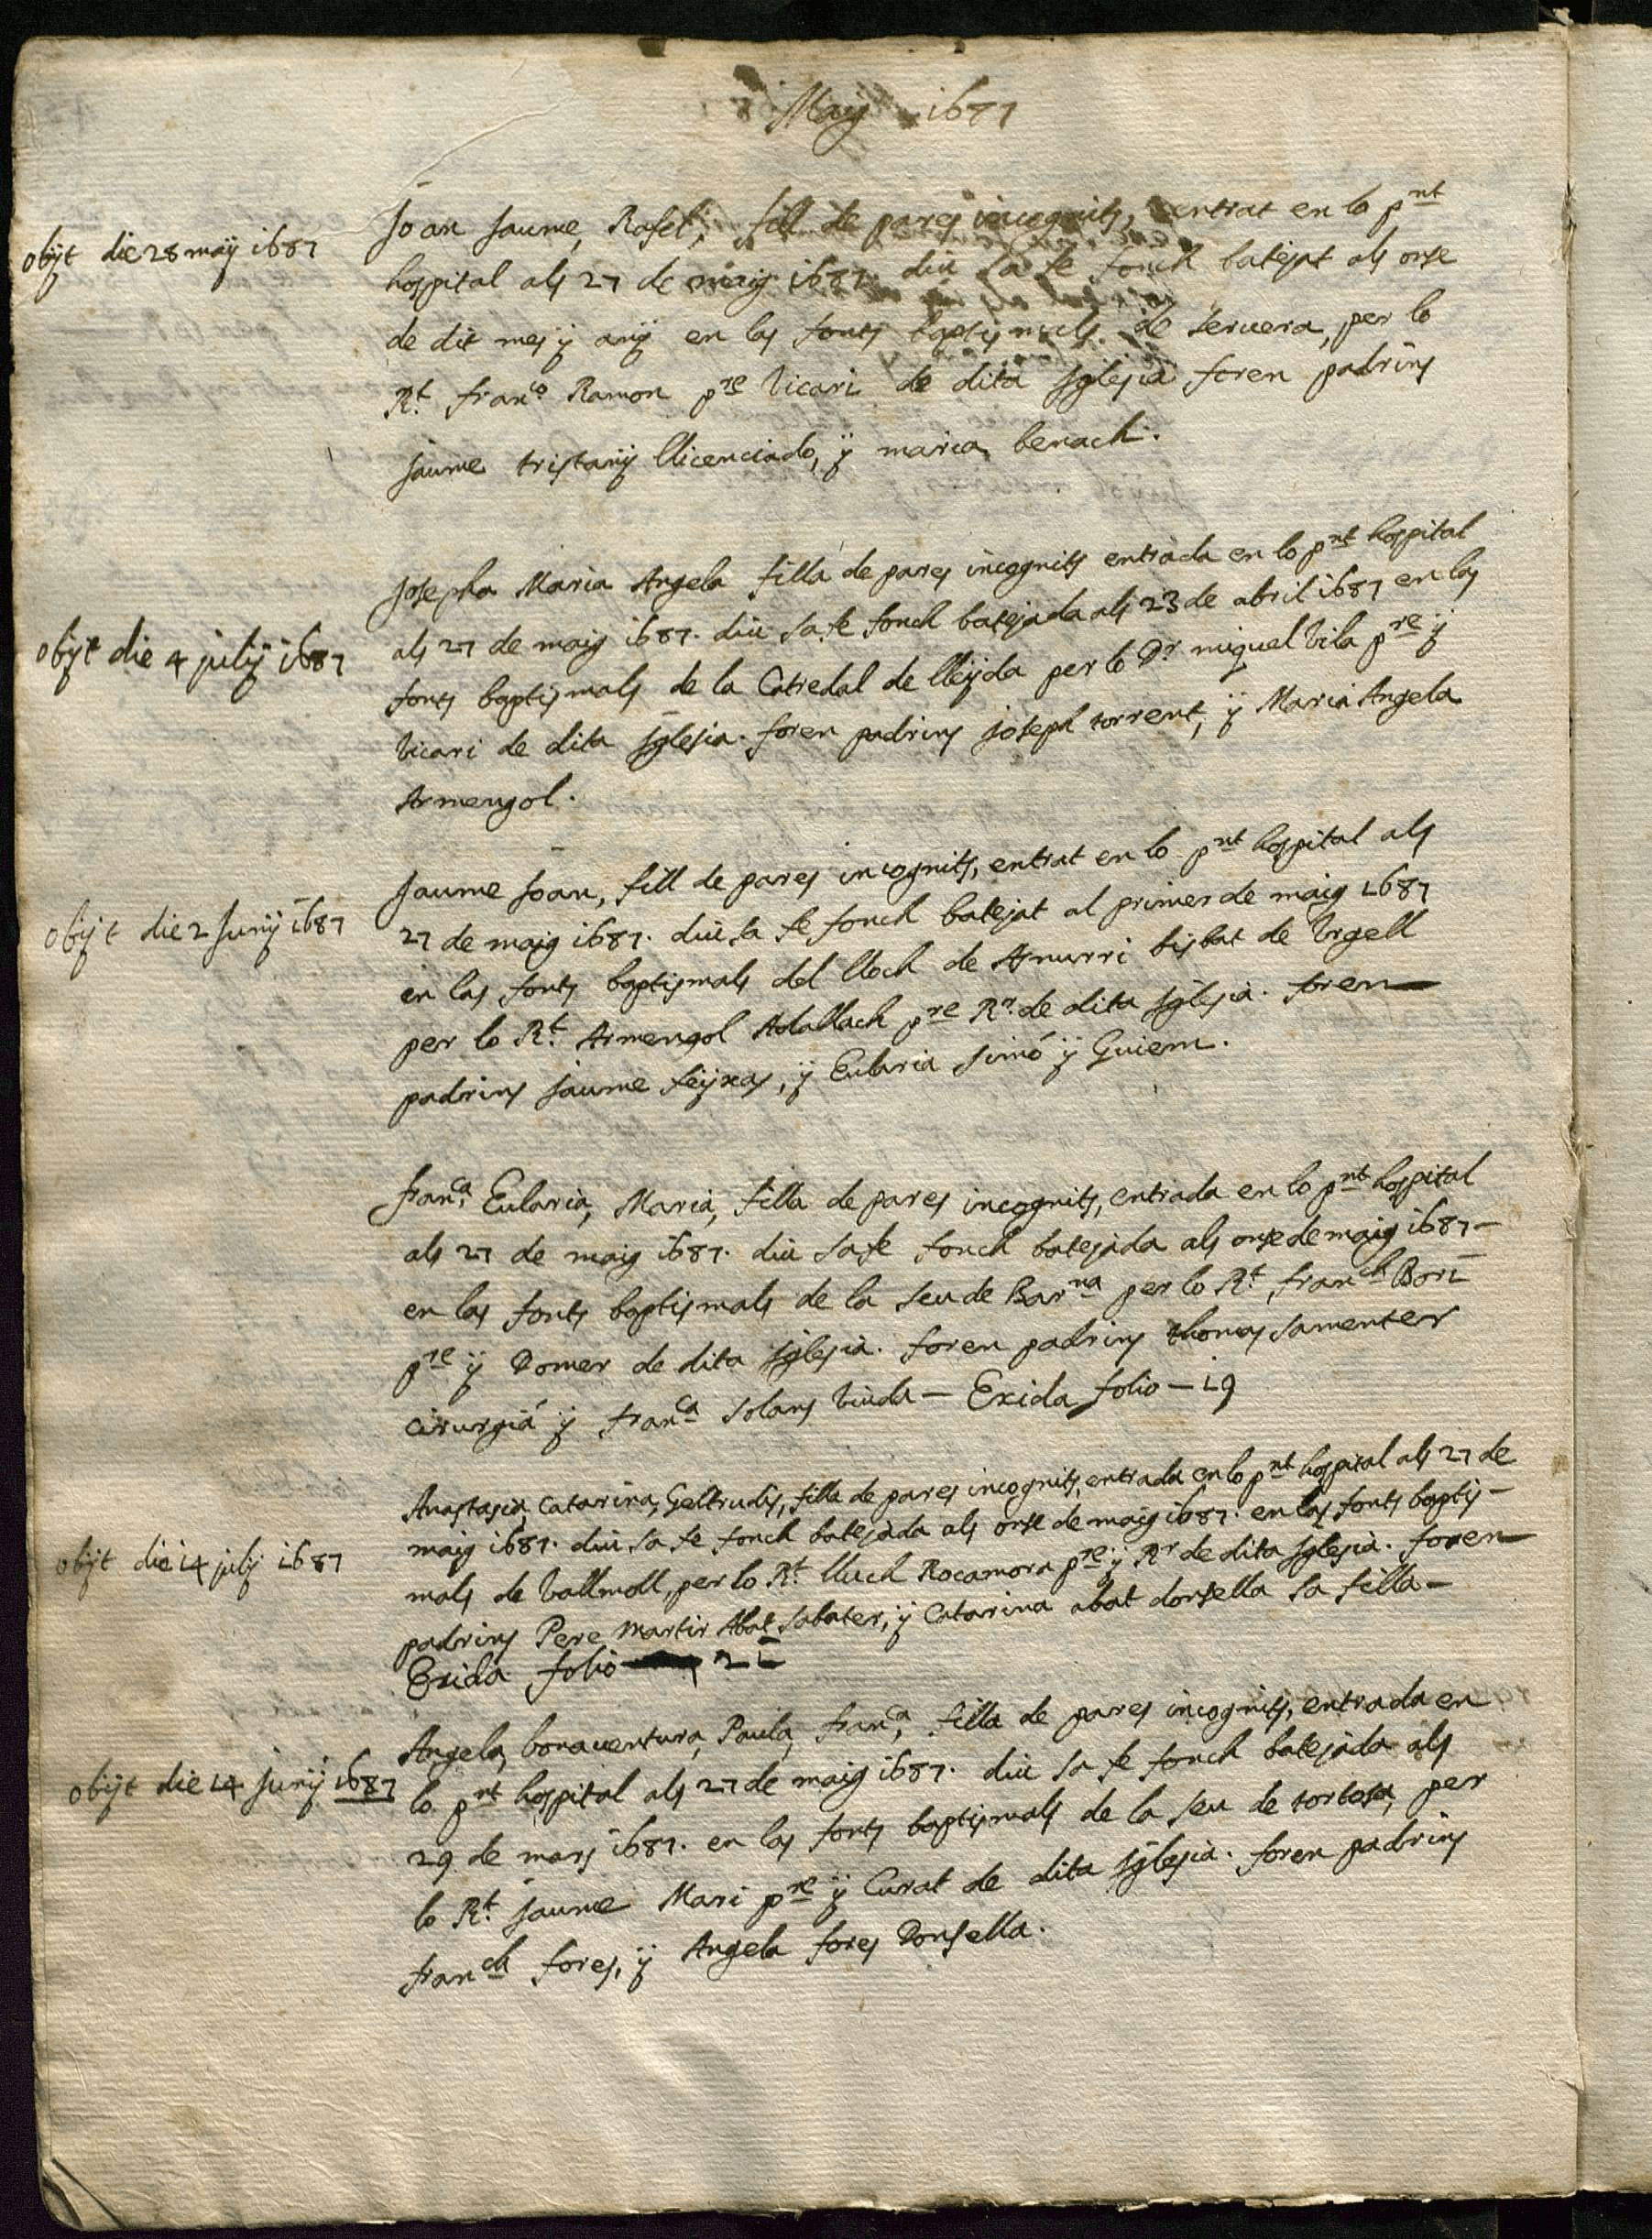 Maig 1677
obÿt die 28 maÿ 1687
Joan Jaume, Rafel, fill de pares incognits, entrat en lo pnt
hospital als 27 de maig 1687. diu sa fe fonch batejat als onse
de dit mes ÿ anÿ en las fonts baptismals de servera, per lo
Rt. Franco Ramon pre vicari de dita Iglesia foren padrins
Jaume tristanÿ llicenciado, ÿ maria benach.
obÿt die 4 julÿ 1687
Josepha Maria Angela filla de pares incognits entrada en lo pnt hospital
als 27 de maig 1687. diu sa fe fonch batejada als 23 de abril 1687 en las
fonts baptismals de la Catredal de lleÿda per lo Dr miquel Vila pre ÿ
Vicari de dita Iglesia. foren padrins joseph torrent, ÿ Maria Angela
Armengol.
obÿt die 2 Junÿ 1687
Jaume Joan, fill de pares incognits, entrat en lo pnt hospital als
27 de maig 1687. diu sa fe fonch batejat al primer de maig 1687
en las fonts baptismals del lloch de Anurri bisbat de Urgell
per lo Rt. Armengol Adallach pre Rr. de dita Iglesia. foren
padrins Jaume feÿxas, ÿ Eularia simó ÿ Guiem.
Franca. Eularia, Maria, filla de pares incognits, entrada en lo pnt hospital
als 27 de maig 1687. diu sa fe fonch batejada als onse de maig 1687
en las fonts baptismals de la seu de Barna per lo Rt. Franch Bori
pre ÿ Domer de dita Iglesia. foren padrins thomas samenter
cirurgiá ÿ Franca solans viuda — Exida folio — 19
obÿt die 14 julÿ 1687
Anastasia, Catarina, Geltrudis, filla de pares incognits, entrada en lo pnt hospital als 27 de
maig 1687. diu sa fe fonch batejada als onse de maig 1687. en las fonts baptis-
mals de Vallmoll, per lo Rt. lluch Rocamora pre ÿ Rr de dita Iglesia. foren
padrins Pere Martir Abat sabater, ÿ Catarina abat donsella sa filla
Exida folio 21
obÿt die 14 Junÿ 1687
Angela, bonaventura, Paula, Franca, filla de pares incognits, entrada en
lo pnt hospital als 27 de maig 1687. diu sa fe fonch batejada als
29 de mars 1687. en las fonts baptismals de la seu de tortosa, per
lo Rt. Jaume Mari pre ÿ Curat de dita Iglesia. foren padrins
Franch fores, ÿ Angela fores Donsella.